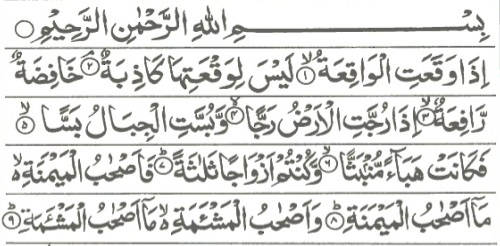 بِسْمِ اللهِ الرَّحْمٰنِ الرَّحِيْمِ ○
اِذَا وَقَعَتِ الْوَاقِعَةُ ۙ﴿۱﴾ لَيْسَ لِوَقْعَتِهَا كَاذِبَةٌ ۘ﴿۲﴾ خَافِضَةٌ
رَّافِعَةٌ ۙ﴿۳﴾ اِذَا رُجَّتِ الْاَرْضُ رَجًّا ۙ﴿۴﴾ وَّبُسَّتِ الْجِبَالُ بَسًّا ۙ﴿۵﴾
فَكَانَتْ هَبَآءً مُّنْۢبَثًّا ۙ﴿۶﴾ وَّكُنْتُمْ اَزْوَاجًا ثَلٰثَةً ؕ﴿۷﴾ فَاَصْحٰبُ الْمَيْمَنَةِ ۙ۬
مَاۤ اَصْحٰبُ الْمَيْمَنَةِ ؕ﴿۸﴾ وَاَصْحٰبُ الْمَشْـَٔمَةِ ۙ۬ مَاۤ اَصْحٰبُ الْمَشْـَٔمَةِ ؕ﴿۹﴾